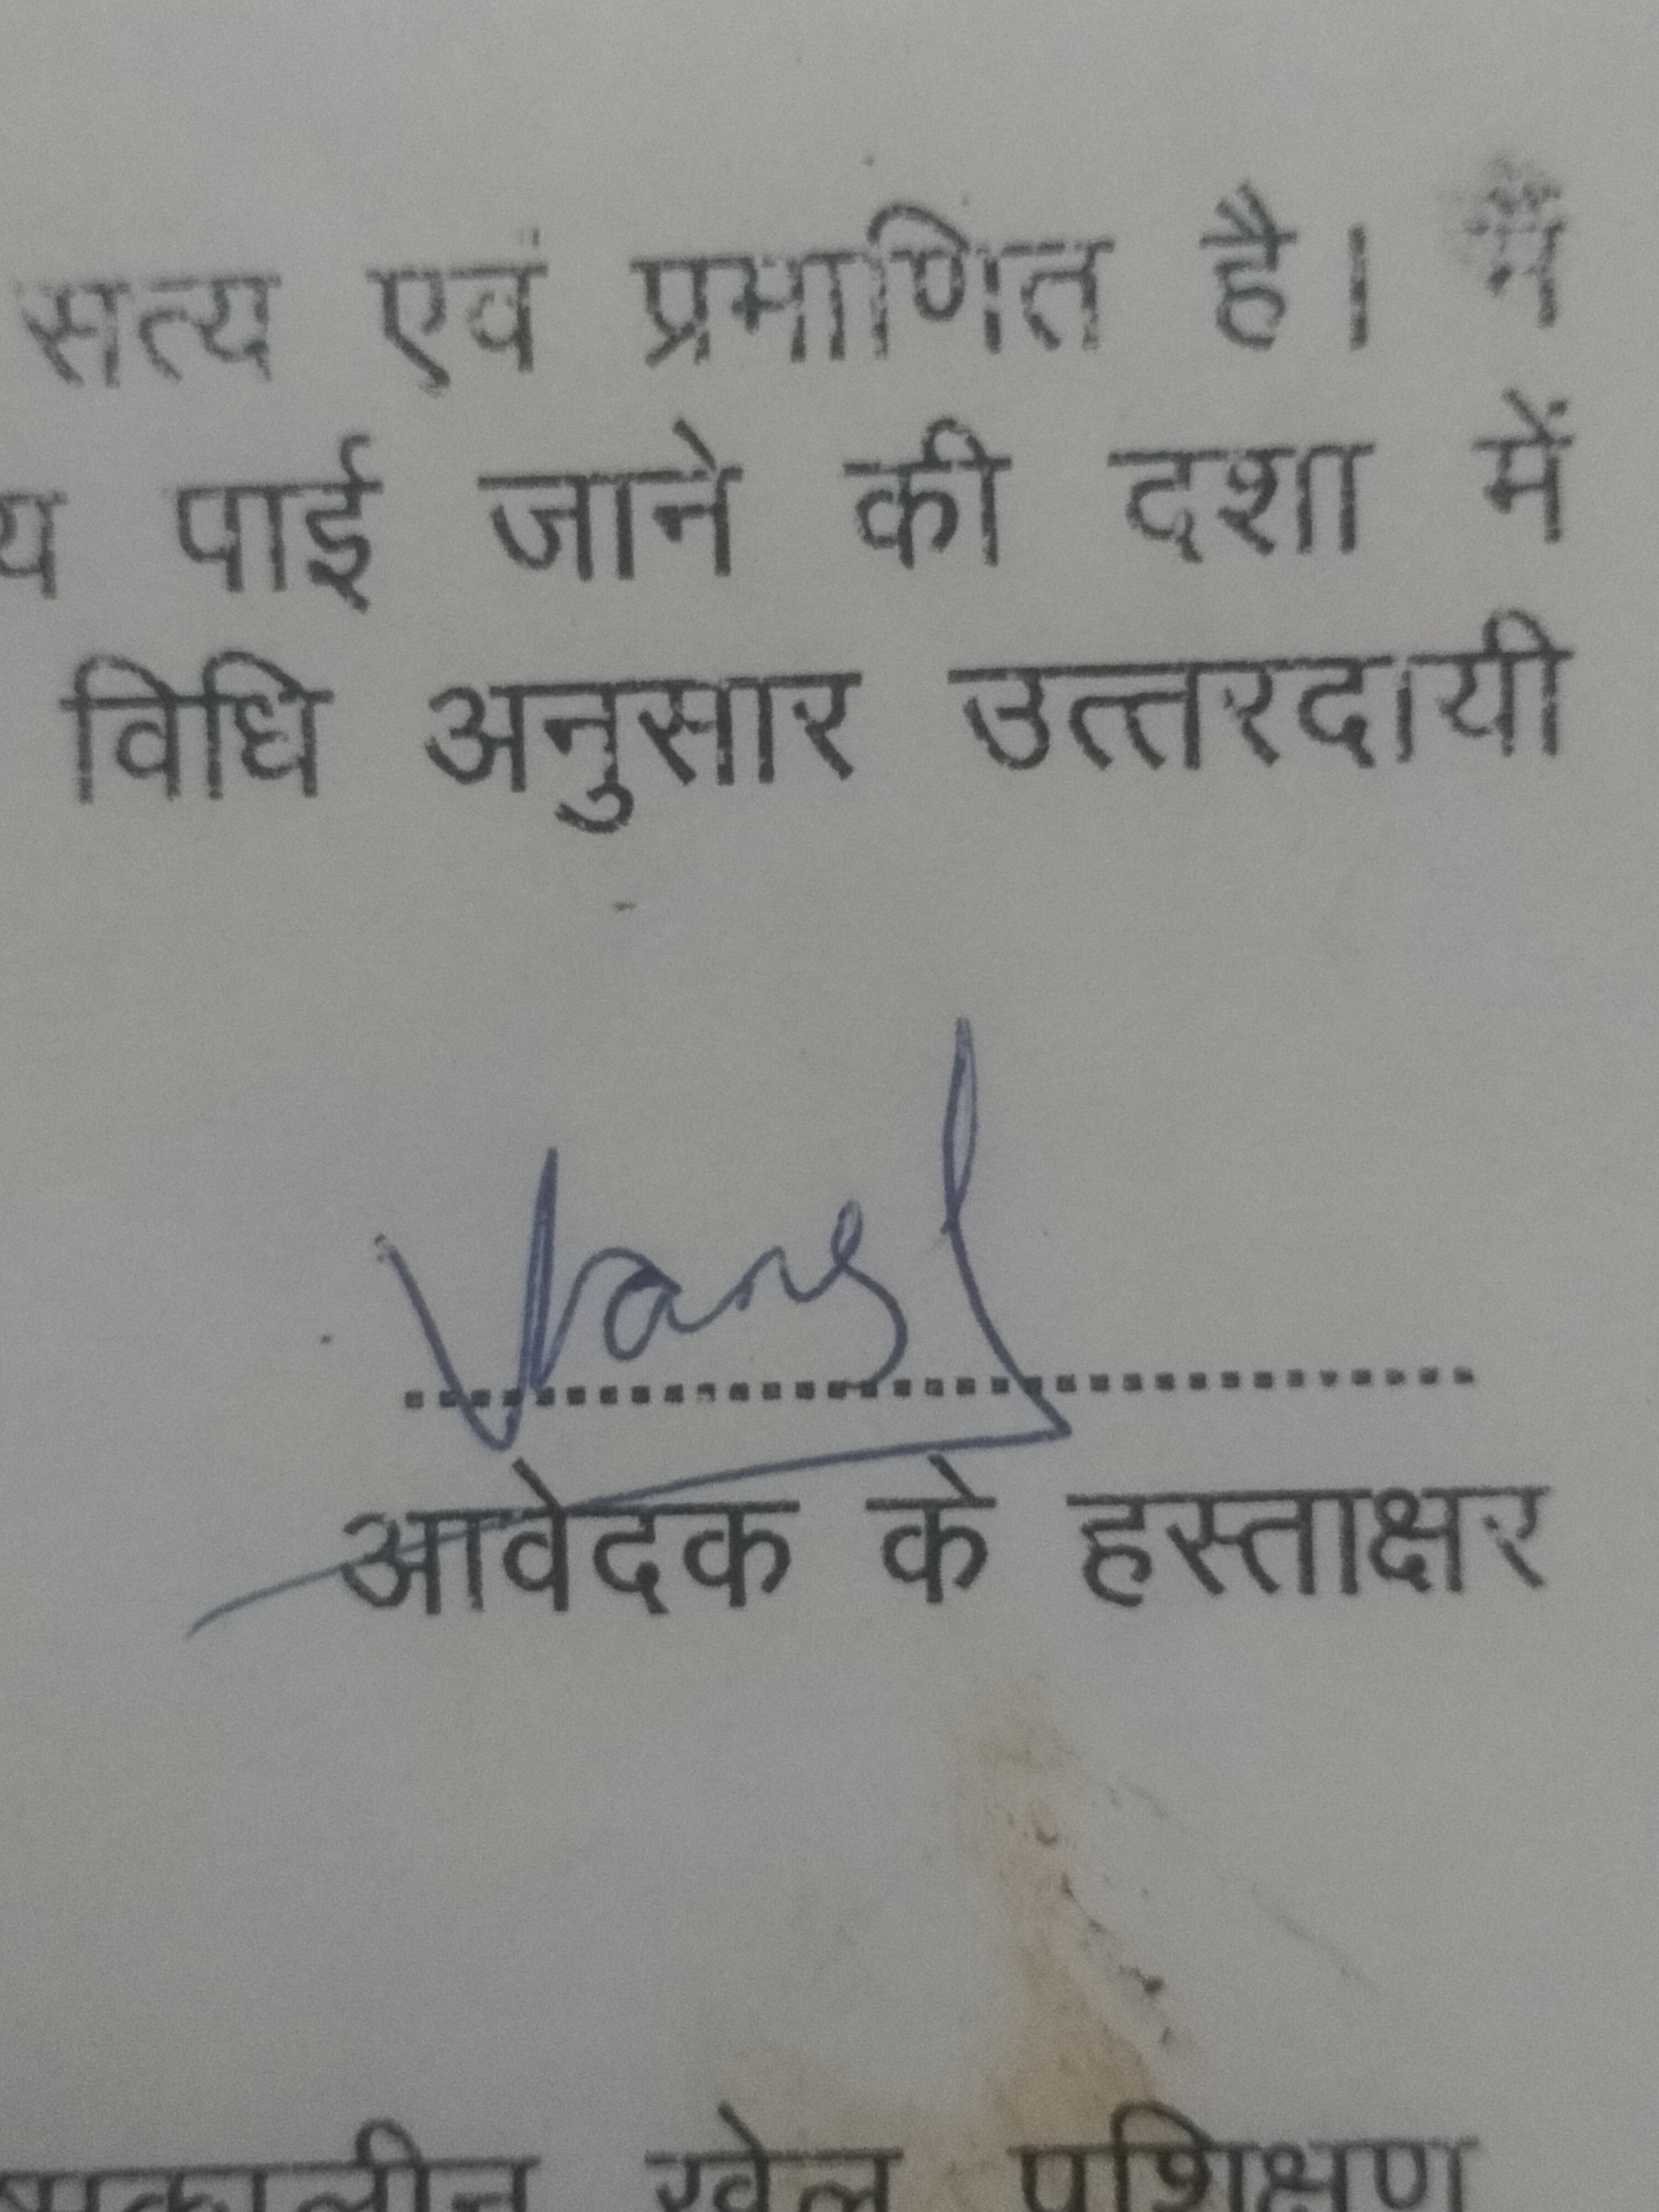 सत्य एवं प्रमाणित है। मैं
पाई जाने की दशा में
विधि अनुसार उत्तरदायी
आवेदक के हस्ताक्षर
खेल प्रशिक्षण